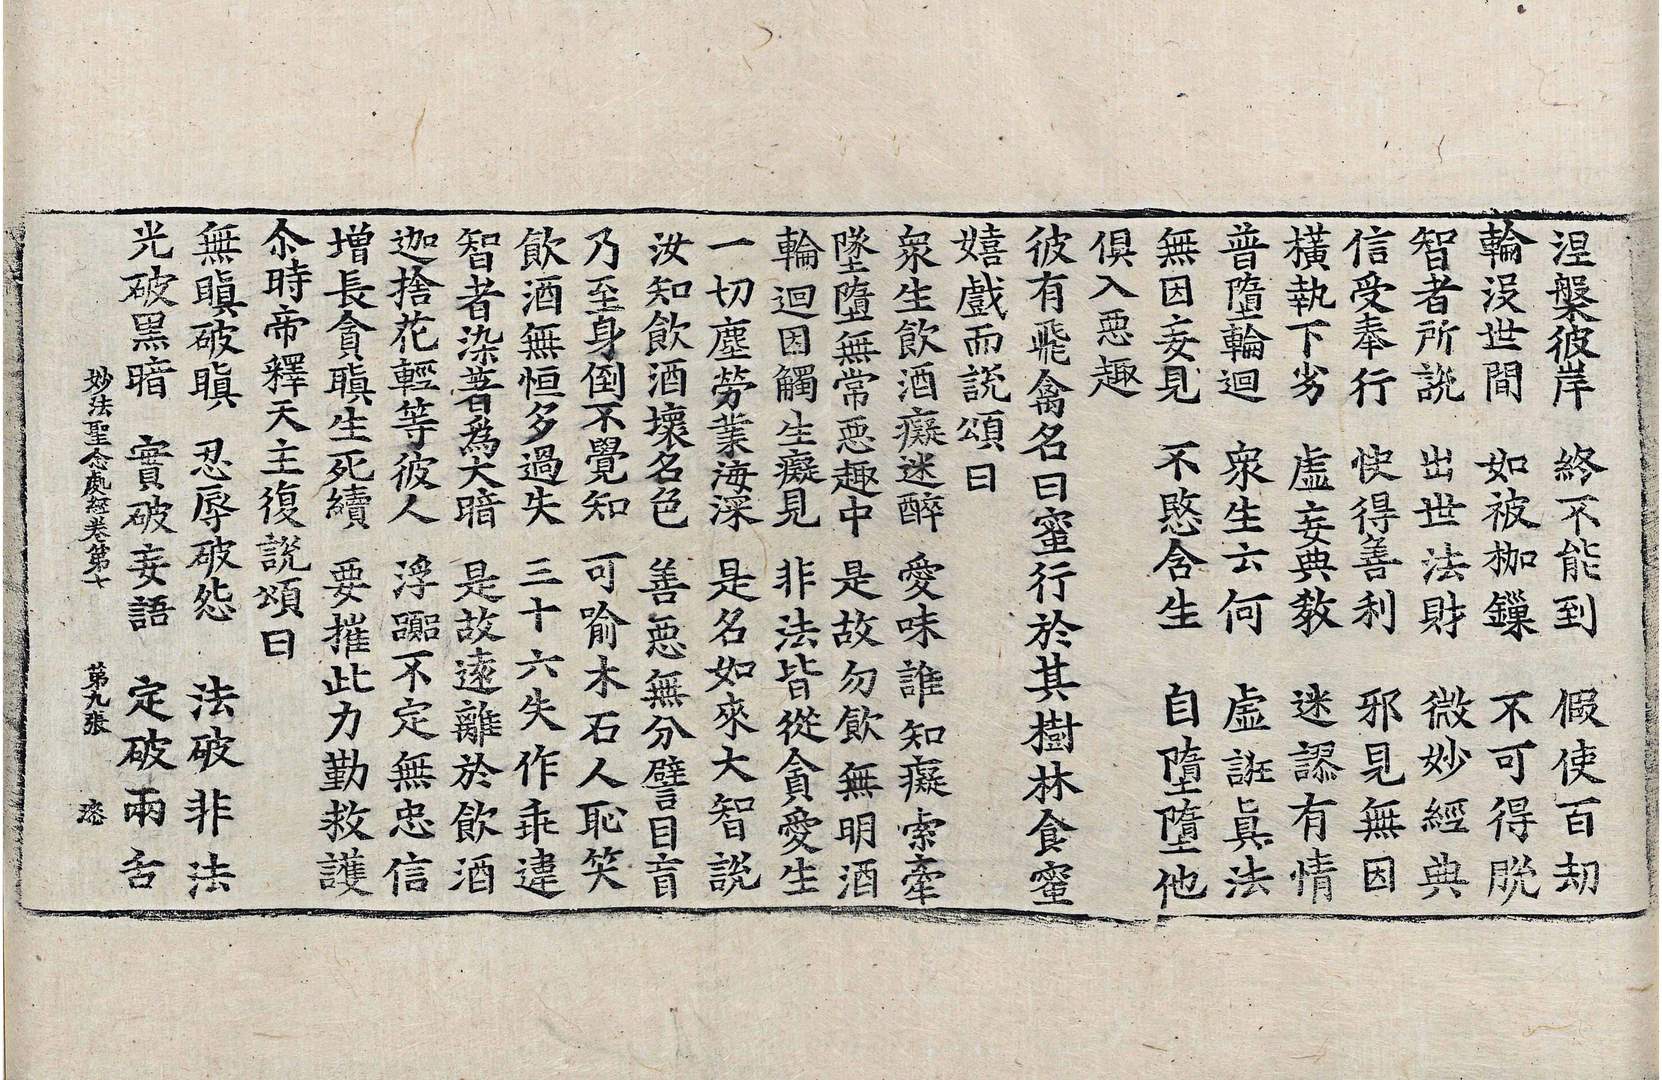 涅槃彼岸　終不能到　假使百劫
輪沒世間　如被枷鏁　不可得脫
智者所說　出世法財　微妙經典
信受奉行　快得善利　邪見無因
橫執下劣　虛妄典教　迷謬有情
普墮輪迴　衆生云何　虛誑眞法
無因妄見　不愍含生　自墮墮他
俱入惡趣
彼有飛禽名曰蜜行於其樹林食蜜
嬉戲而說頌曰
衆生飲酒癡迷醉　愛味誰知癡索牽
墜墮無常惡趣中　是故勿飲無明酒
輪迴因觸生癡見　非法皆從貪愛生
一切塵勞業海深　是名如來大智說
汝知飲酒壞名色　善惡無分譬目盲
乃至身倒不覺知　可喻木石人恥笑
飲酒無恒多過失　三十六失作乖違
智者染著爲大暗　是故遠離於飲酒
迦捨花輕等彼人　浮躁不定無忠信
增長貪瞋生死續　要摧此力勤救護
尒時帝釋天主復說頌曰
無瞋破瞋　忍辱破怨　法破非法
光破黑暗　實破妄語　定破兩舌
妙法聖念處經卷第七　第九張